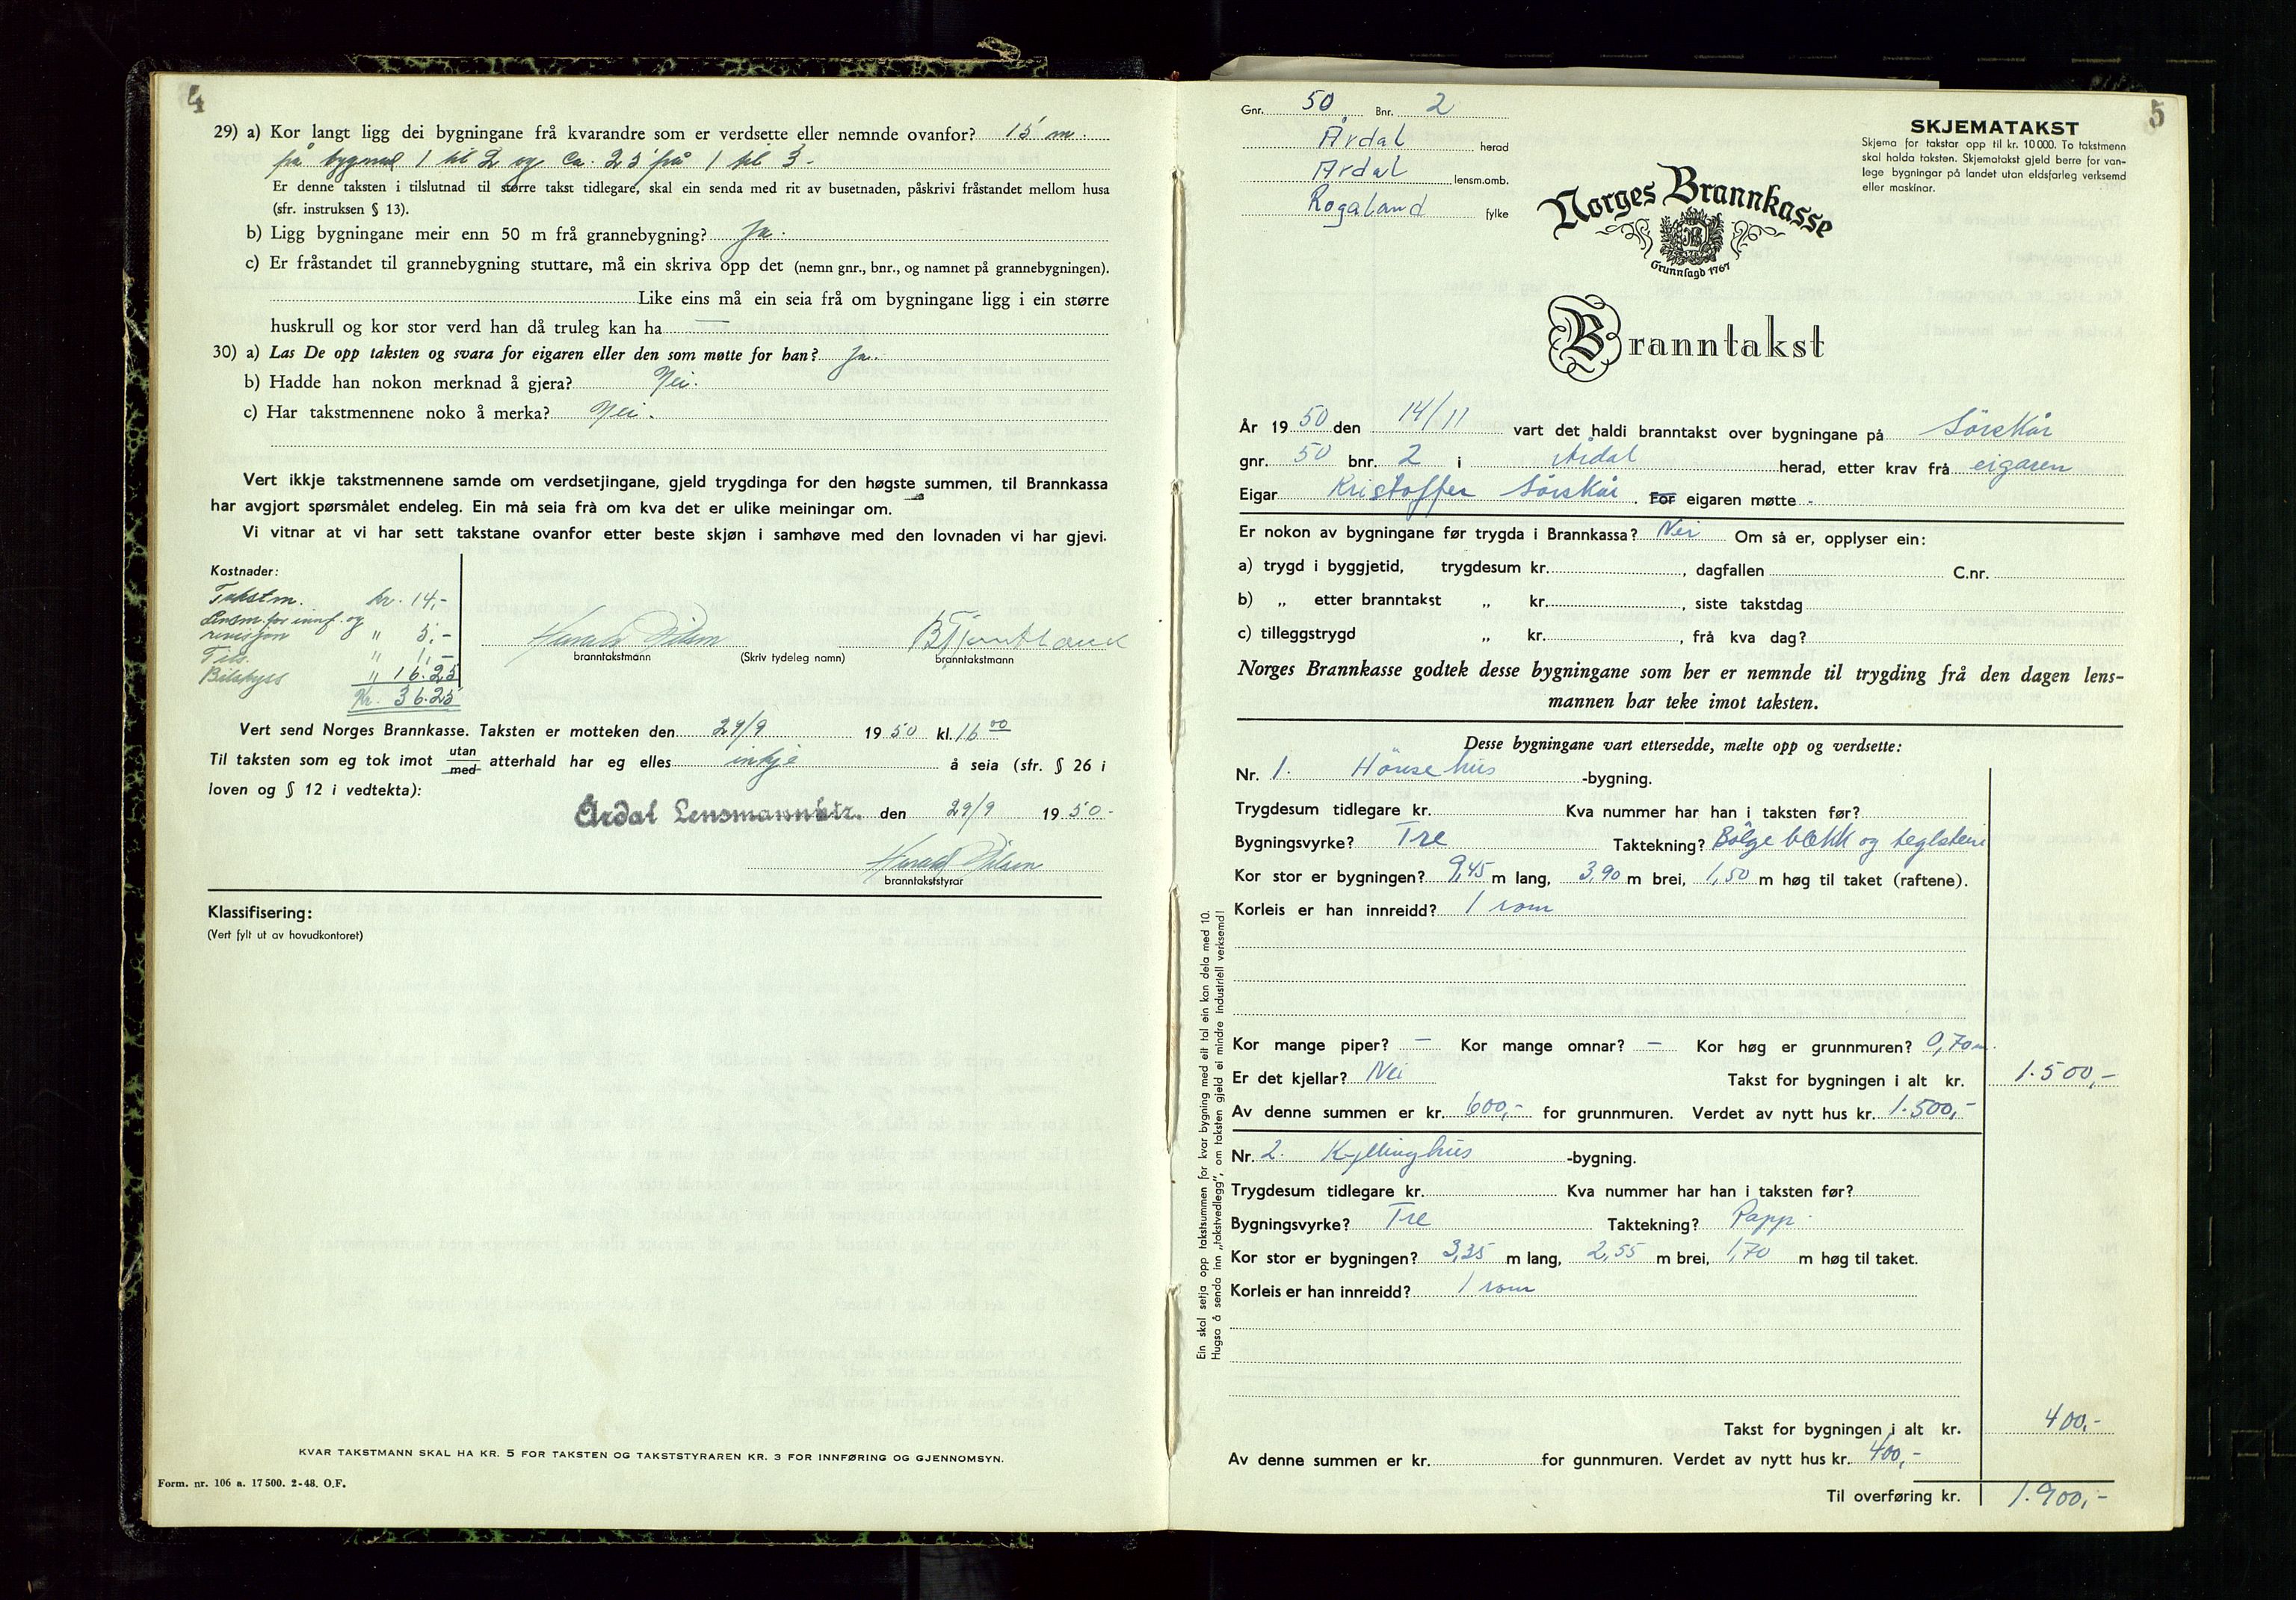 4
29) a) Kor langt ligg dei bygningane frå kvarandre som er verdsette eller nemnde ovanfor? 15 m.
på bygnad 1 til 2 og ca. 25 på 1 til 3.
Er denne taksten i tilslutnad til større takst tidlegare, skal ein senda med rit av busetnaden, påskrivi fråstandet mellom husa
(sfr. instruksen § 13).
b) Ligg bygningane meir enn 50 m frå grannebygning? Ja.
c) Er fråstandet til grannebygning stuttare, må ein skriva opp det (nemn gnr., bnr., og namnet på grannebygningen).
Like eins må ein seia frå om bygningane ligg i ein større
huskrull og kor stor verd han då truleg kan ha —
30) a) Las De opp taksten og svara for eigaren eller den som møtte for han? Ja.
b) Hadde han nokon merknad å gjera? Nei.
c) Har takstmennene noko å merka? Nei.
Vert ikkje takstmennene samde om verdsetjingane, gjeld trygdinga for den høgste summen, til Brannkassa
har avgjort spørsmålet endeleg. Ein må seia frå om kva det er ulike meiningar om.
Vi vitnar at vi har sett takstane ovanfor etter beste skjøn i samhøve med den lovnaden vi har gjevi.
Kostnader:
Takstm. kr. 14,-
Lensm. for innf. og
revisjon " 5,-
" 1,-
Bilskyss " 16.25
Kr. 36.25
branntakstmann (Skriv tydeleg namn) branntakstmann
Vert send Norges Brannkasse. Taksten er motteken den 29/9 1950 kl. 16 00
Til taksten som eg tok imot utan/med atterhald har eg elles inkje å seia (sfr. § 26 i
loven og § 12 i vedtekta):
Årdal Lensmannktr. den 29/9 1950.
branntakststyrar
Klassifisering:
(Vert fylt ut av hovudkontoret)
KVAR TAKSTMANN SKAL HA KR. 5 FOR TAKSTEN OG TAKSTSTYRAREN KR. 3 FOR INNFØRING OG GJENNOMSYN.
Form. nr. 106 a. 17500. 2-48. O.F.
5
Gnr. 50 Bnr. 2
Årdal herad
Årdal lensm.omb.
Rogaland fylke
SKJEMATAKST
Skjema for takstar opp til kr. 10 000. To takstmenn
skal halda taksten. Skjematakst gjeld berre for van-
lege bygningar på landet utan eldsfarleg verksemd
eller maskinar.
Norges Brannkasse
Grunnlagd 1767
Branntakst
År 1950 den 14/11 vart det haldi branntakst over bygningane på Sörskår
gnr. 50 bnr. 2 i Årdal herad, etter krav frå eigaren
Eigar Kristoffer Sörskår. For eigaren møtte -
Er nokon av bygningane før trygda i Brannkassa? Nei Om så er, opplyser ein:
a) trygd i byggjetid, trygdesum kr. , dagfallen C.nr.
b) „ etter branntakst „ kr. , siste takstdag
c) tilleggstrygd „ kr. , frå kva dag?
Norges Brannkasse godtek desse bygningane som her er nemnde til trygding frå den dagen lens-
mannen har teke imot taksten.
Desse bygningane vart ettersedde, mælte opp og verdsette:
Nr. 1. Hönsehus -bygning.
Trygdesum tidlegare kr. Kva nummer har han i taksten før?
Bygningsvyrke? Tre Taktekning? Bölgeblekk og teglstein
Kor stor er bygningen? 9,45 m lang, 3,90 m brei, 1,50 m høg til taket (raftene).
Korleis er han innreidd? 1 rom
Kor mange piper? — Kor mange omnar? — Kor høg er grunnmuren? 0,70 m.
Er det kjellar? Nei Takst for bygningen i alt kr. 1.500,-
Av denne summen er kr. 600,- for grunnmuren. Verdet av nytt hus kr. 1.500,-
Nr. 2. Kyllinghus -bygning.
Trygdesum tidlegare kr. Kva nummer har han i taksten før?
Bygningsvyrke? Tre Taktekning? Papp.
Kor stor er bygningen? 3,35 m lang, 2,55 m brei, 1,70 m høg til taket.
Korleis er han innreidd? 1 rom
Takst for bygningen i alt kr. 400,-
Av denne summen er kr. for gunnmuren. Verdet av nytt hus kr. 400,-
Til overføring kr. 1.900,-
Ein skal setja opp takstsummen for kvar bygning med eit tal ein kan dela med 10.
Hugsa å senda inn „takstvedlegg", om taksten gjeld ei mindre industriell verksemd!